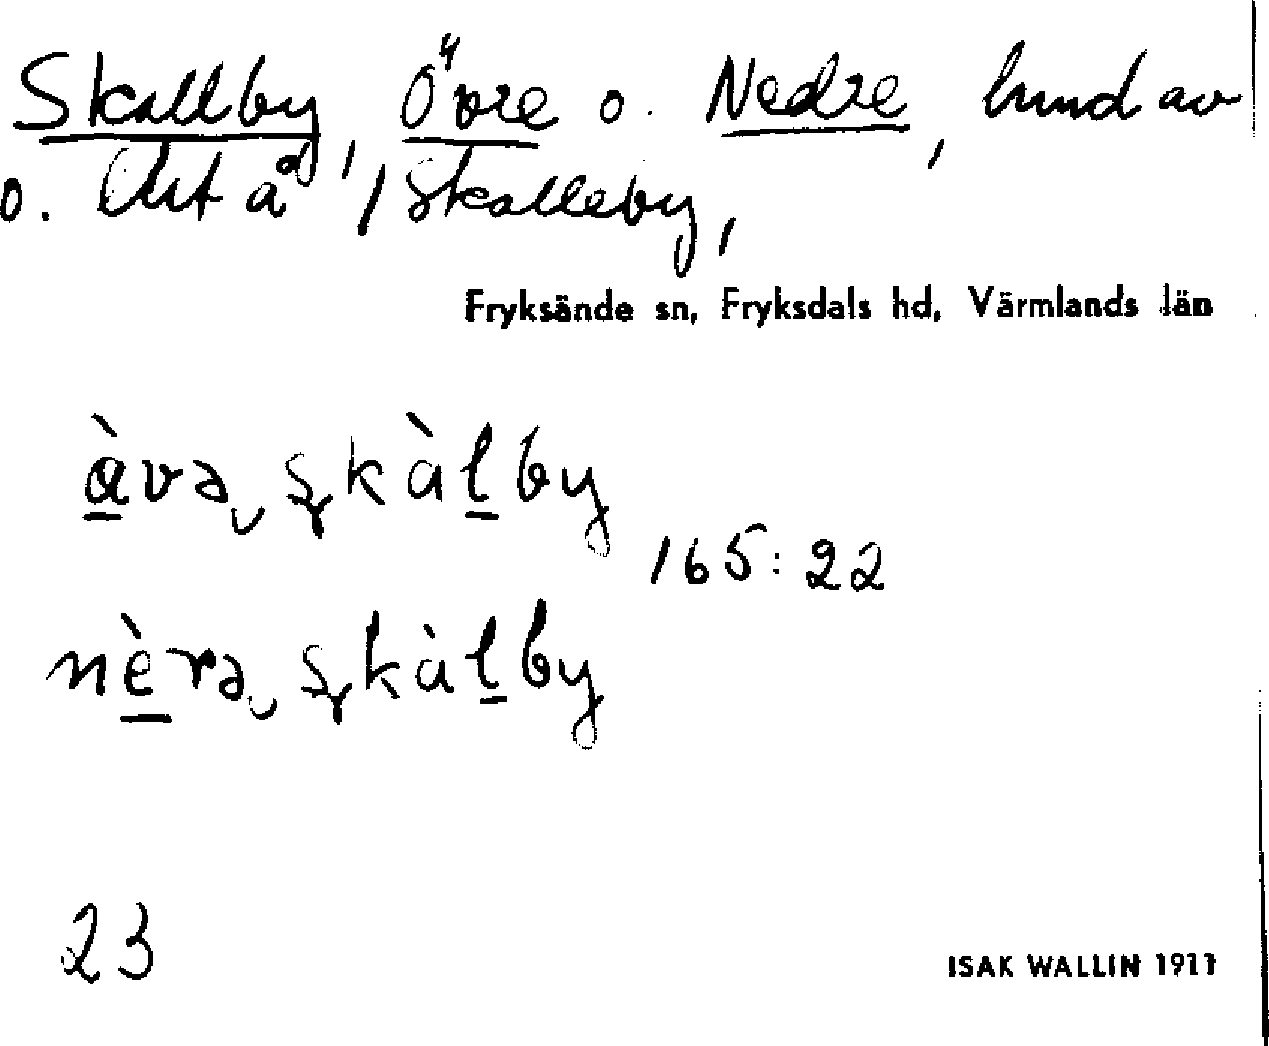 Skallby, Övre o. Nedre, hmd av
o. Ås å, / Skalleby,
Fryksände sn, Fryksdals hd, Värmlands län
àvə skàlby
165:22
nèrə skàlby
23
ISAK WALLIN 1911